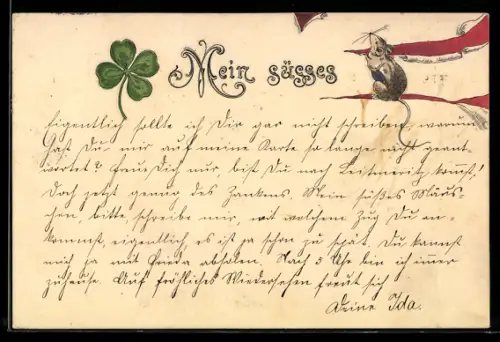 Mein süsses
Eigentlich sollte ich Dir gar nicht schreiben, warum
hast Du mir auf meine Karte so lange nicht geant
wortet? Freue Dich nur, bist Du nach Leitmeritz kommst!
Doch jetzt genug des Zankens. Mein süßes Mäus-
chen, bitte, schreibe mir, mit welchem Zug Du an-
kommst, eigentlich, es ist ja schon zu spät. Du kannst
mich ja mit Frieda abholen. Nach 5 Uhr bin ich immer
zuhause. Auf fröhliches Wiedersehen freut sich
Deine Ida.